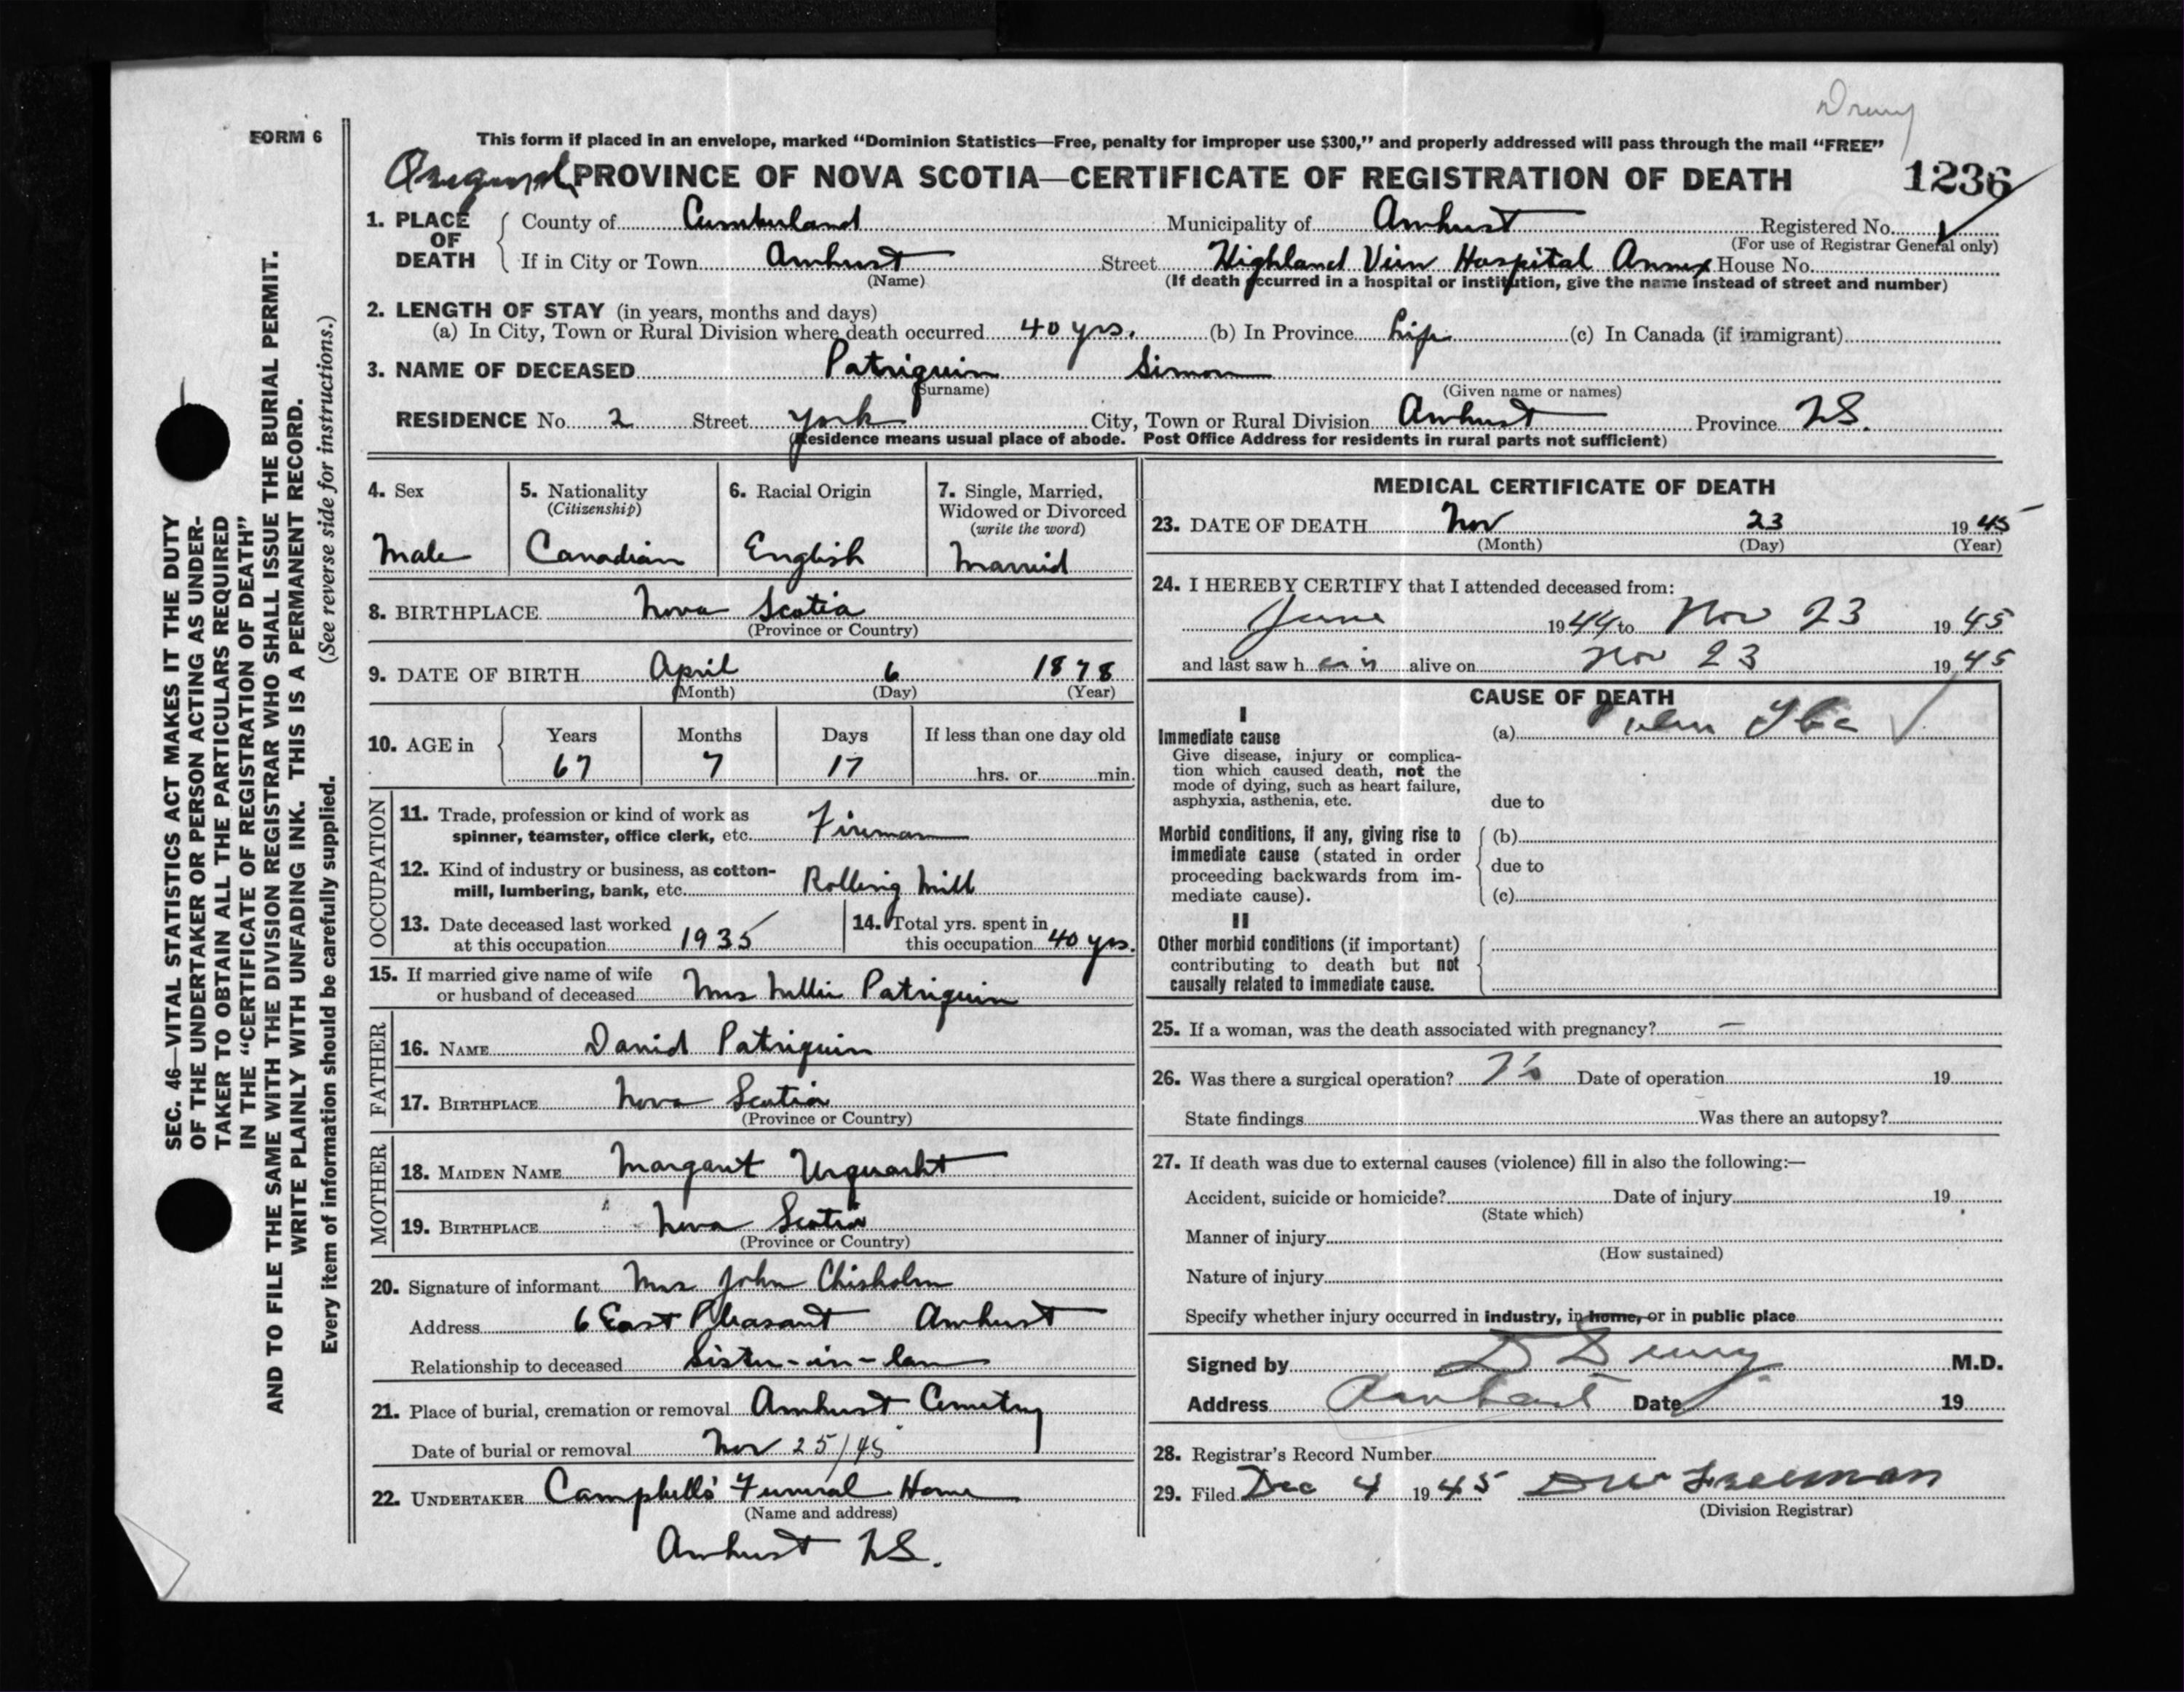 FORM 6
This form if placed in an envelope, marked “Dominion Statistics—Free, penalty for improper use $300,” and properly addressed will pass through the mail “FREE”
Original PROVINCE OF NOVA SCOTIA—CERTIFICATE OF REGISTRATION OF DEATH 1236
1. PLACE OF DEATH County of Cumberland Municipality of Amherst Registered No.
(For use of Registrar General only)
If in City or Town Amherst Street Highland View Hospital Annex House No.
(Name) (If death occurred in a hospital or institution, give the name instead of street and number)
2. LENGTH OF STAY (in years, months and days)
(a) In City, Town or Rural Division where death occurred 40 yrs. (b) In Province Life (c) In Canada (if immigrant)
3. NAME OF DECEASED Patriquin Simon
(Surname) (Given name or names)
RESIDENCE No. 2 Street York City, Town or Rural Division Amherst Province N.S.
(Residence means usual place of abode. Post Office Address for residents in rural parts not sufficient)
4. Sex
Male
5. Nationality
(Citizenship)
Canadian
6. Racial Origin
English
7. Single, Married,
Widowed or Divorced
(write the word)
Married
8. BIRTHPLACE Nova Scotia
(Province or Country)
9. DATE OF BIRTH April 6 1878
(Month) (Day) (Year)
10. AGE in Years Months Days If less than one day old
67 7 17 hrs. or min.
OCCUPATION
11. Trade, profession or kind of work as
spinner, teamster, office clerk, etc. Fireman
12. Kind of industry or business, as cotton-
mill, lumbering, bank, etc. Rolling Mill
13. Date deceased last worked
at this occupation 1935
14. Total yrs. spent in
this occupation 40 yrs.
15. If married give name of wife
or husband of deceased Mrs Nellie Patriquin
FATHER
16. NAME David Patriquin
17. BIRTHPLACE Nova Scotia
(Province or Country)
MOTHER
18. MAIDEN NAME Margaret Urquarht
19. BIRTHPLACE Nova Scotia
(Province or Country)
20. Signature of informant Mrs John Chisholm
Address 6 East Pleasant Amherst
Relationship to deceased Sister-in-law
21. Place of burial, cremation or removal Amherst Cemetry
Date of burial or removal Nov 25/45
22. UNDERTAKER Campbell's Funeral Home
(Name and address)
Amherst N.S.
MEDICAL CERTIFICATE OF DEATH
23. DATE OF DEATH Nov 23 1945
(Month) (Day) (Year)
24. I HEREBY CERTIFY that I attended deceased from:
June 1944 to Nov 23 1945
and last saw h im alive on Nov 23 1945
CAUSE OF DEATH
I
Immediate cause
Give disease, injury or complica-
tion which caused death, not the
mode of dying, such as heart failure,
asphyxia, asthenia, etc.
(a) Pulm Tbc
due to
Morbid conditions, if any, giving rise to
immediate cause (stated in order
proceeding backwards from im-
mediate cause).
(b)
due to
(c)
II
Other morbid conditions (if important)
contributing to death but not
causally related to immediate cause.
25. If a woman, was the death associated with pregnancy? —
26. Was there a surgical operation? No Date of operation 19
State findings Was there an autopsy?
27. If death was due to external causes (violence) fill in also the following:—
Accident, suicide or homicide? Date of injury 19
(State which)
Manner of injury
(How sustained)
Nature of injury
Specify whether injury occurred in industry, in home, or in public place
Signed by M.D.
Address Amherst Date 19
28. Registrar's Record Number
29. Filed Dec 4 1945 DW Freeman
(Division Registrar)
SEC. 46—VITAL STATISTICS ACT MAKES IT THE DUTY
OF THE UNDERTAKER OR PERSON ACTING AS UNDER-
TAKER TO OBTAIN ALL THE PARTICULARS REQUIRED
IN THE “CERTIFICATE OF REGISTRATION OF DEATH”
AND TO FILE THE SAME WITH THE DIVISION REGISTRAR WHO SHALL ISSUE THE BURIAL PERMIT.
WRITE PLAINLY WITH UNFADING INK. THIS IS A PERMANENT RECORD.
Every item of information should be carefully supplied. (See reverse side for instructions.)